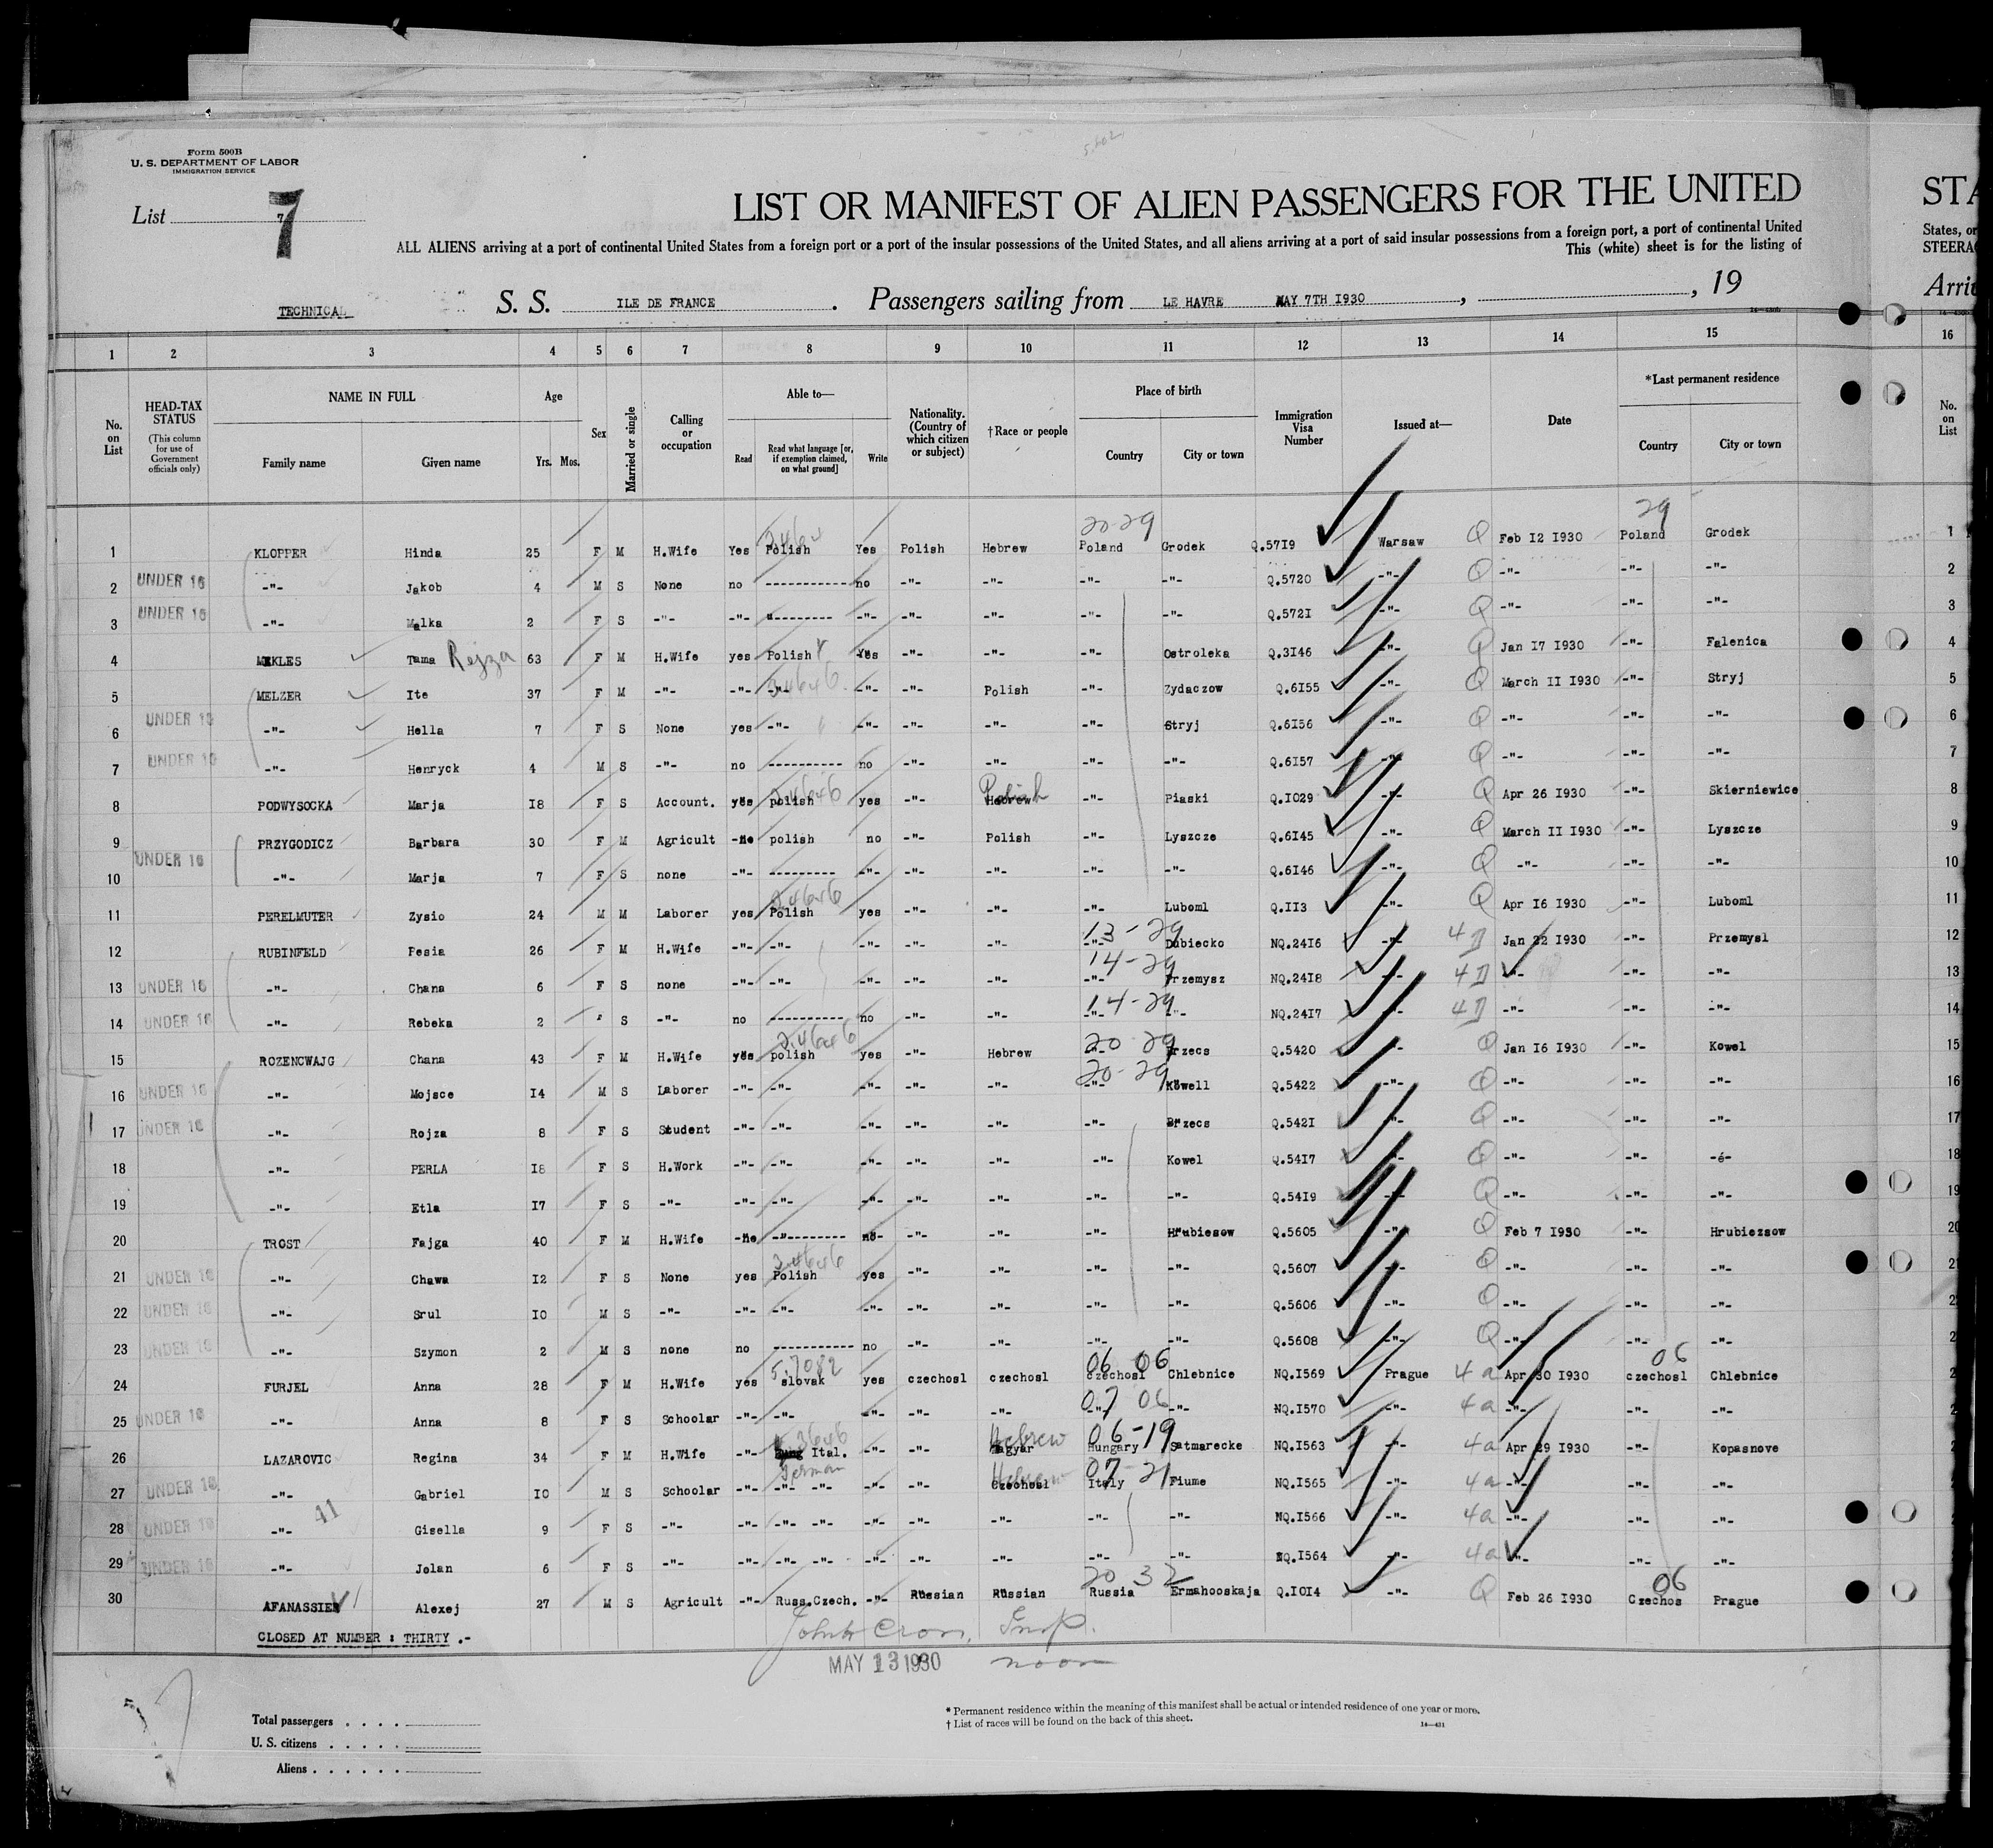 5.602
Form 500B
U. S. DEPARTMENT OF LABOR
IMMIGRATION SERVICE
List 7
7
LIST OR MANIFEST OF ALIEN PASSENGERS FOR THE UNITED STA
ALL ALIENS arriving at a port of continental United States from a foreign port or a port of the insular possessions of the United States, and all aliens arriving at a port of said insular possessions from a foreign port, a port of continental United States, or
This (white) sheet is for the listing of STEERA
TECHNICAL S. S. ILE DE FRANCE . Passengers sailing from LE HAVRE MAY 7TH I930 , , 19 Arri
1 2 3 4 5 6 7 8 9 10 11 12 13 14 15 16
No. on List HEAD-TAX STATUS (This column for use of Government officials only) NAME IN FULL Family name Given name Age Yrs. Mos. Sex Married or single Calling or occupation Able to— Read Read what language [or, if exemption claimed, on what ground] Write Nationality. (Country of which citizen or subject) †Race or people Place of birth Country City or town Immigration Visa Number Issued at— Date *Last permanent residence Country City or town No. on List
20-29 29
1 KLOPPER Hinda 25 F M H.Wife Yes Polish Yes Polish Hebrew Poland Grodek Q.57I9 Warsaw Q Feb I2 I930 Poland Grodek 1
2 UNDER 16 -"- Jakob 4 M S None no ----------- no -"- -"- -"- -"- Q.5720 -"- Q -"- -"- -"- 2
3 UNDER 16 -"- Malka 2 F S -"- -"- --------- -"- -"- -"- -"- -"- Q.572I -"- Q -"- -"- -"- 3
4 MEKLES Tama Rejza 63 F M H.Wife yes Polish Yes -"- -"- -"- Ostroleka Q.3I46 -"- Q Jan I7 I930 -"- Falenica 4
5 MELZER Ite 37 F M -"- -"- -"- -"- -"- Polish -"- Zydaczow Q.6I55 -"- Q March II I930 -"- Stryj 5
6 UNDER 16 -"- Hella 7 F S None yes -"- -"- -"- -"- -"- Stryj Q.6I56 -"- Q -"- -"- -"- 6
7 UNDER 16 -"- Henryck 4 M S -"- no ---------- no -"- -"- -"- -"- Q.6I57 -"- Q -"- -"- -"- 7
8 PODWYSOCKA Marja I8 F S Account. yes polish yes -"- Hebrew Polish -"- Piaski Q.I029 -"- Q Apr 26 I930 -"- Skierniewice 8
9 PRZYGODICZ Barbara 30 F M Agricult no polish no -"- Polish -"- Lyszcze Q.6I45 -"- Q March II I930 -"- Lyszcze 9
10 UNDER 16 -"- Marja 7 F S none -"- --------- -"- -"- -"- -"- -"- Q.6I46 -"- Q -"- -"- -"- 10
11 PERELMUTER Zysio 24 M M Laborer yes Polish yes -"- -"- -"- Luboml Q.II3 -"- Q Apr I6 I930 -"- Luboml 11
13-29
12 RUBINFELD Pesia 26 F M H.Wife -"- -"- -"- -"- -"- -"- Dubiecko NQ.24I6 -"- Jan 22 I930 -"- Przemysl 12
14-29
13 UNDER 16 -"- Chana 6 F S none -"- -"- -"- -"- -"- -"- Przemysz NQ.24I8 -"- -"- -"- -"- 13
14-29
14 UNDER 16 -"- Rebeka 2 F S -"- no ---------- no -"- -"- -"- -"- NQ.24I7 -"- -"- -"- -"- 14
20-29
15 ROZENCWAJG Chana 43 F M H.Wife yes polish yes -"- Hebrew -"- Brzecs Q.5420 -"- Q Jan I6 I930 -"- Kowel 15
20-29
16 UNDER 16 -"- Mojsce I4 M S Laborer -"- -"- -"- -"- -"- -"- Kowell Q.5422 -"- Q -"- -"- -"- 16
17 UNDER 16 -"- Rojza 8 F S Student -"- -"- -"- -"- -"- -"- Brzecs Q.542I -"- Q -"- -"- -"- 17
18 -"- PERLA I8 F S H.Work -"- -"- -"- -"- -"- -"- Kowel Q.54I7 -"- Q -"- -"- -é- 18
19 -"- Etla I7 F S -"- -"- -"- -"- -"- -"- -"- -"- Q.54I9 -"- Q -"- -"- -"- 19
20 TROST Fajga 40 F M H.Wife no -"-------- no -"- -"- -"- Hrubiesow Q.5605 -"- Q Feb 7 I930 -"- Hrubiezsow 20
21 UNDER 16 -"- Chawa I2 F S None yes Polish yes -"- -"- -"- -"- Q.5607 -"- Q -"- -"- -"- 21
22 UNDER 16 -"- Srul I0 M S -"- -"- -"- -"- -"- -"- -"- -"- Q.5606 -"- Q -"- -"- -"- 2
23 UNDER 16 -"- Szymon 2 M S none no ----------- no -"- -"- -"- -"- Q.5608 -"- Q -"- -"- -"- 2
06 06 06
24 FURJEL Anna 28 F M H.Wife yes slovak yes czechosl czechosl czechosl Chlebnice NQ.I569 Prague 4a Apr 30 I930 czechosl Chlebnice 2
07 06
25 UNDER 16 -"- Anna 8 F S Schoolar -"- -"- -"- -"- -"- -"- -"- NQ.I570 -"- 4a -"- -"- -"- 2
Hebrew 06-19
26 LAZAROVIC Regina 34 F M H.Wife -"- Ital. -"- -"- Magyar Hungary Satmarecke NQ.I563 -"- 4a Apr 29 I930 -"- Kopasnove 2
German Hebrew 07-21
27 UNDER 16 -"- Gabriel I0 M S Schoolar -"- -"- -"- -"- -"- Czechosl Italy Fiume NQ.I565 -"- 4a -"- -"- -"- 2
41
28 UNDER 16 -"- Gisella 9 F S -"- -"- -"- -"- -"- -"- -"- -"- -"- NQ.I566 -"- 4a -"- -"- -"- 2
29 UNDER 16 -"- Jolan 6 F S -"- -"- -"- -"- -"- -"- -"- -"- -"- NQ.I564 -"- 4a -"- -"- -"- 2
20 32 06
30 AFANASSIEV Alexej 27 M S Agricult -"- Russ.Czech. -"- Russian Russian Russia Ermahooskaja Q.I0I4 -"- Q Feb 26 I930 Czechos Prague 3
CLOSED AT NUMBER : THIRTY .-
Insp.
MAY 13 1930 noon
Total passengers
U. S. citizens
Aliens
* Permanent residence within the meaning of this manifest shall be actual or intended residence of one year or more.
† List of races will be found on the back of this sheet.
14—431